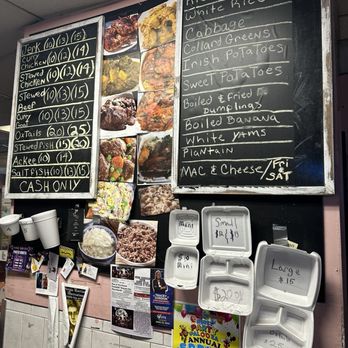 Jerk (10) (13) (15)
Curry
Chicken (10) (13) (14)
Stewed
Chicken (10) (12) (14)
Stewed (10) (13) (15)
Beef
Curry (10) (13) (15)
Goat
Oxtails (20) (25)
Stewed Fish (15) (20)
Ackee (10) (14)
Salt Fish (10) (13) (15)
CASH ONLY
White Rice
Cabbage
Collard Greens
Irish Potatoes
Sweet Potatoes
Boiled & Fried
Dumplings
Boiled Banana
White yams
Plantain
MAC & Cheese / Fri
SAT
Mini
Small
Mini
Large
$15
ANNUAL